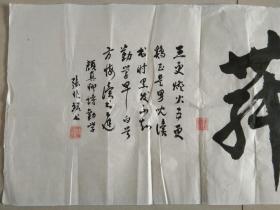 三更燈火五更
鷄正是男兒讀
書時黑发不知
勤学早白首
方悔讀書遲
顔真卿詩勤学
張
書